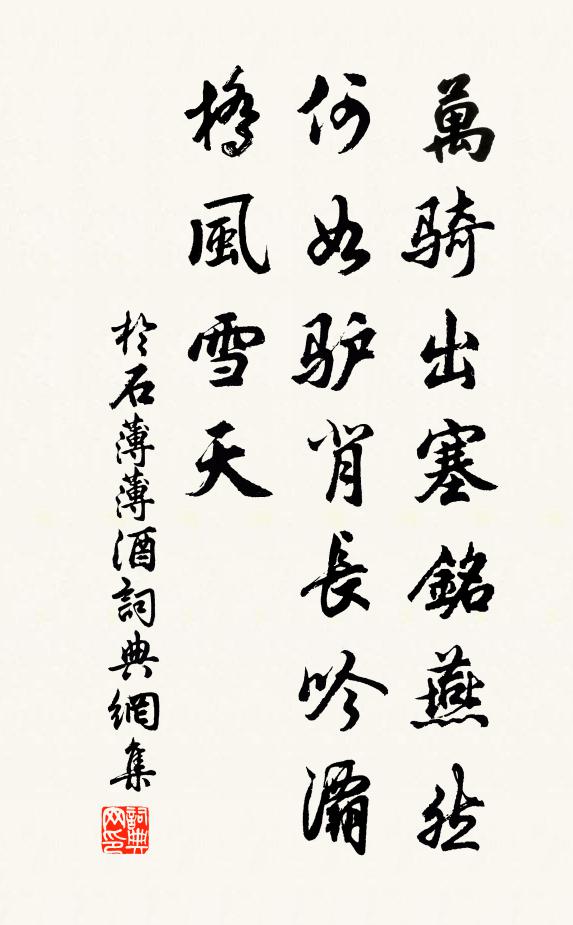 萬骑出塞銘燕然
何如驴背長吟灞
橋風雪天
於石薄薄酒詞典網集
詞典网印